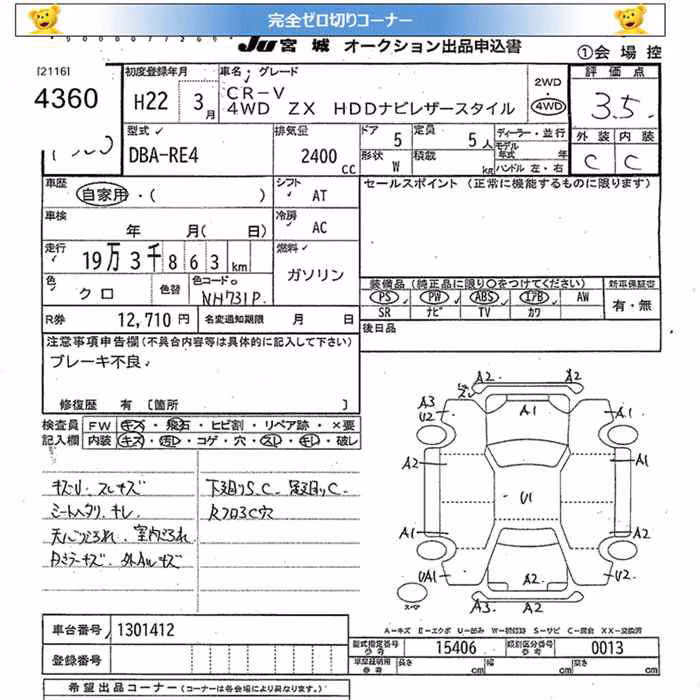 完全ゼロ切りコーナー
JU宮城 オークション出品申込書
①会場控
[2116]
4360
初度登録年月
H22 3月
車名 グレード
CR-V
4WD ZX HDDナビレザースタイル
2WD
4WD
評価点
3.5
外装 内装
C C
型式
DBA-RE4
排気量
2400 cc
ドア 5
定員 5人
形状 W
積載 kg
ディーラー・並行
モデル年式 年
ハンドル 左・右
車歴
自家用・( )
シフト AT
セールスポイント (正常に機能するものに限ります)
車検
年 月( 日)
冷房 AC
走行
19万3千863km
燃料
ガソリン
色
クロ
色替
色コードNo.
NH731P
装備品 (純正品に限り○をつけてください)
PS PW ABS エアB AW
SR ナビ TV カワ
新車保証書
有・無
R券 12,710円
名変通知期限 月 日
後日品
注意事項申告欄(不具合内容等は具体的に記入して下さい)
ブレーキ不良
修復歴 有 [箇所 ]
検査員記入欄
FW キズ・飛石・ヒビ割・リペア跡・×要
内装 キズ・汚レ・コゲ・穴・スレ・キレ・破レ
キズU スレキズ
シートヘタリ キレ
天バリよごれ 室内よごれ
下廻りS.C
A2
A2
A3
U2
A1
A1
A2
A1
U1
A1
A2
UA1
A2
U2
A3 A2
A-キズ E-エクボ U-凹み W-補修跡 S-サビ C-腐食 XX-交換済
車台番号 1301412
型式指定番号 15406
類別区分番号 0013
登録番号
長さ cm 幅 cm 高さ cm
希望出品コーナー (コーナーは各会場により異なります。)